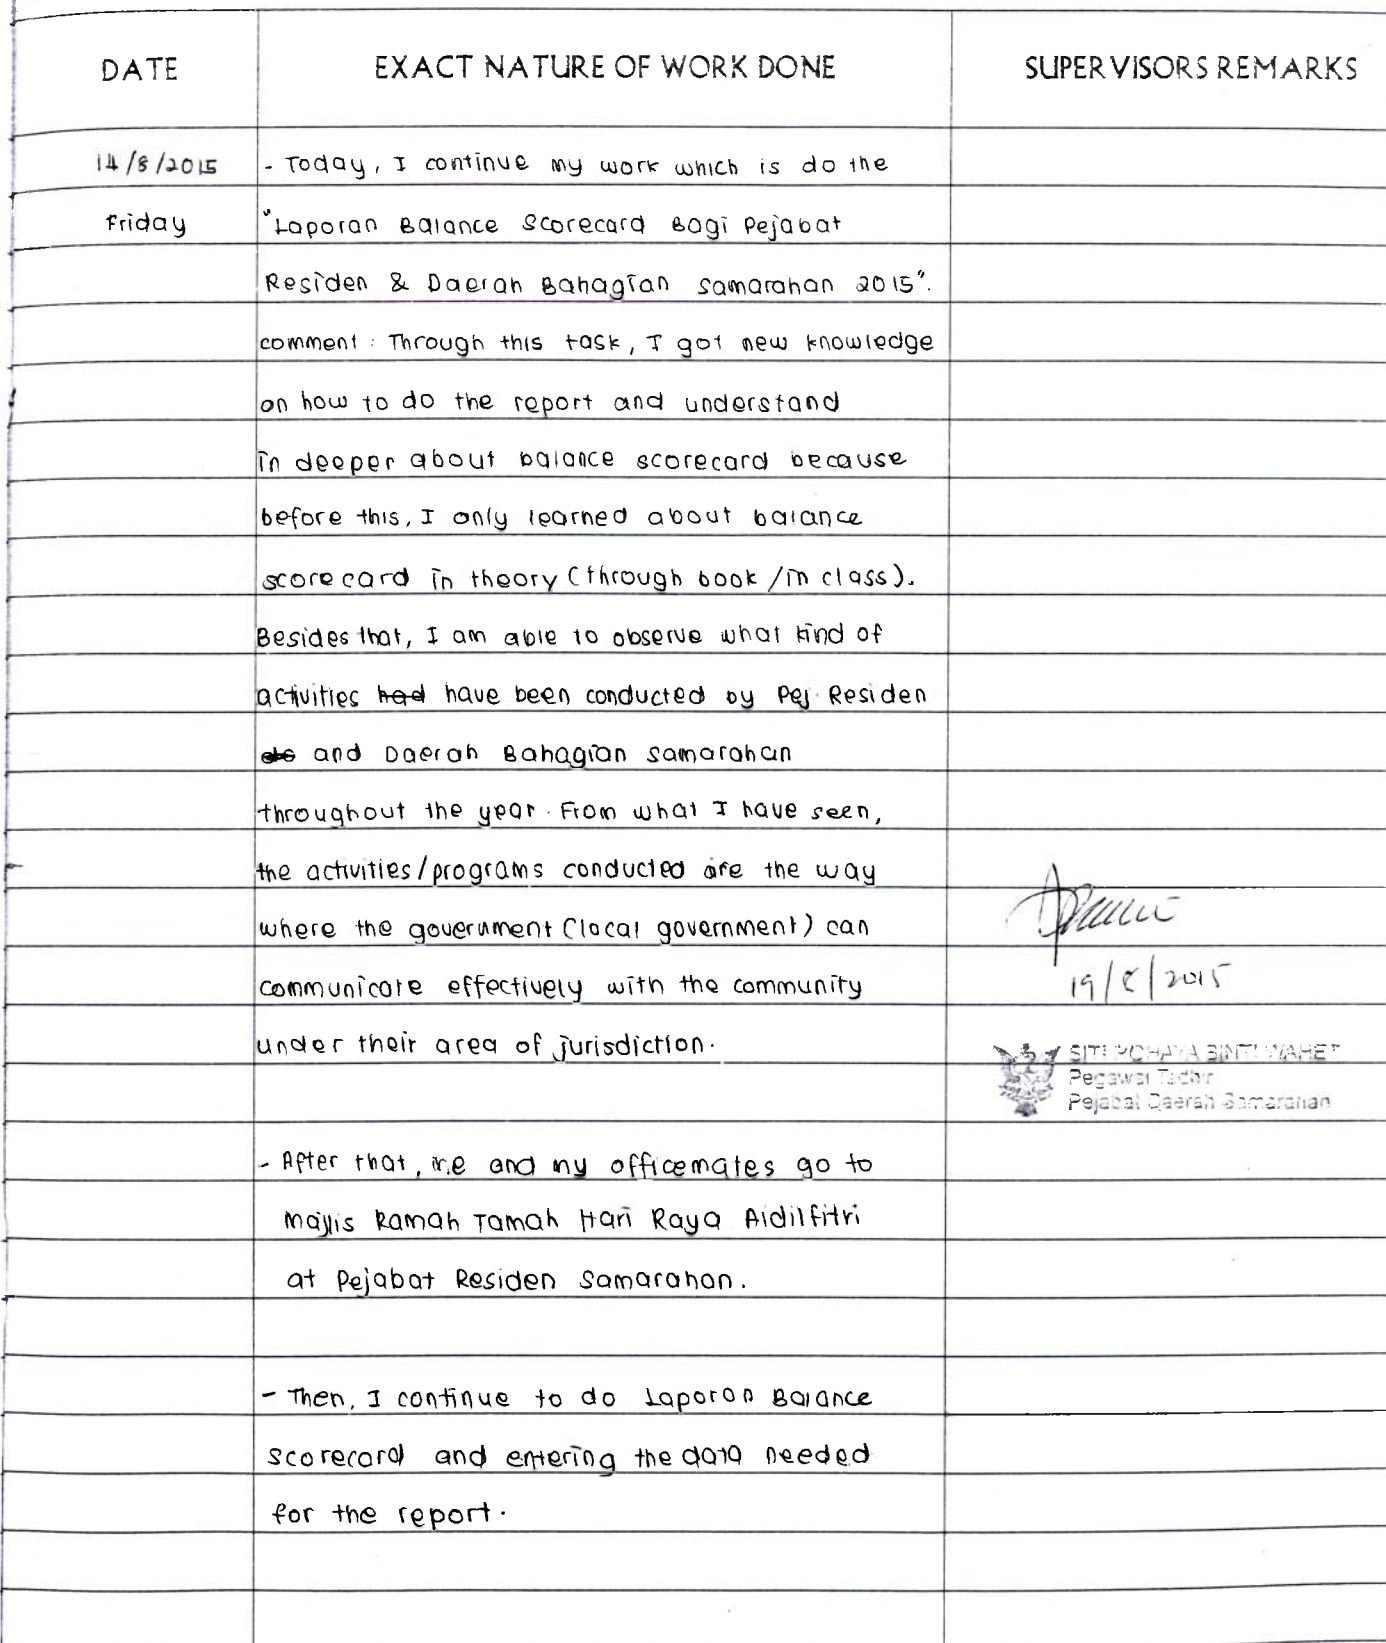 DATE EXACT NATURE OF WORK DONE SUPERVISORS REMARKS
14/8/2015 - Today, I continue my work which is do the
Friday "Laporan Balance Scorecard Bagi Pejabat
Residen & Daerah Bahagian Samarahan 2015".
comment : Through this task, I got new knowledge
on how to do the report and understand
in deeper about balance scorecard because
before this, I only learned about balance
scorecard in theory (through book / in class).
Besides that, I am able to observe what kind of
activities had have been conducted by Pej. Residen
and Daerah Bahagian Samarahan
throughout the year. From what I have seen,
the activities/programs conducted are the way
where the government (local government) can
communicate effectively with the community
19/8/2015
under their area of jurisdiction.
SITI BINTI
Pegawai Tadbir
Pejabat Daerah Samarahan
- After that, me and my officemates go to
Majlis Ramah Tamah Hari Raya Aidilfitri
at Pejabat Residen Samarahan.
- Then, I continue to do Laporan Balance
scorecard and entering the data needed
for the report.